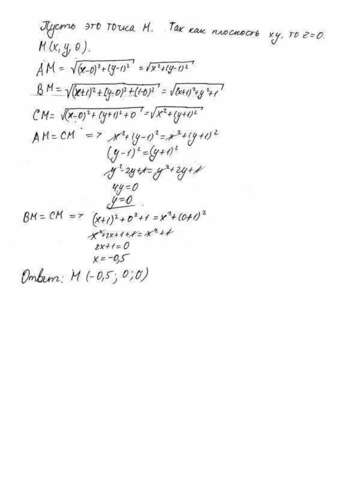 Пусть это точка М. Так как плоскость xy, то z=0.
M(x,y,0).
AM = √(x-0)²+(y-1)² = √x²+(y-1)²
BM = √(x+1)²+(y-0)²+(1-0)² = √(x+1)²+y²+1
CM = √(x-0)²+(y+1)²+0 = √x²+(y+1)²
AM=CM => x²+(y-1)²=x²+(y+1)²
(y-1)²=(y+1)²
y²-2y+1=y²+2y+1
4y=0
y=0
BM=CM => (x+1)²+0²+1=x²+(0+1)²
x²+2x+1+1=x²+1
2x+1=0
x=-0,5
Ответ: M(-0,5; 0; 0)